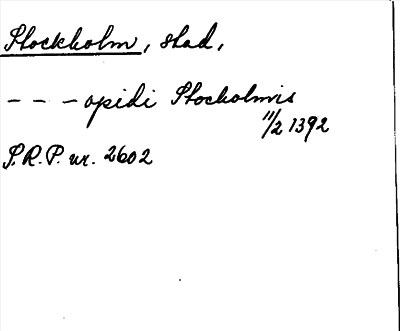 Stockholm, stad,
- - - opidi Stocholmis
11/2 1392
S.R.P. nr. 2602